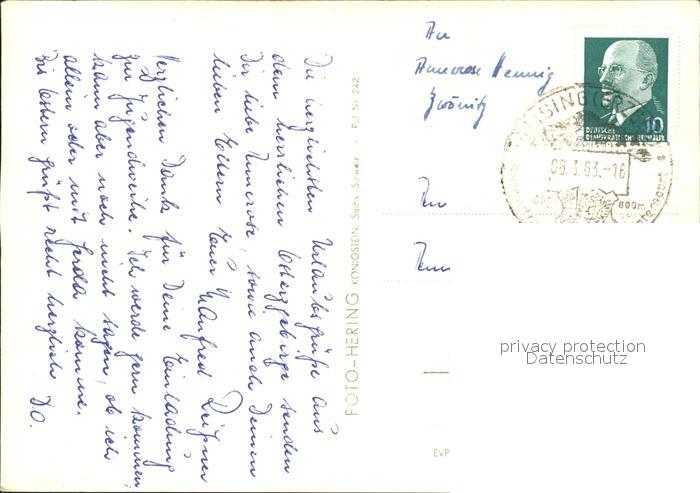 Die herzlichsten Urlaubsgrüße aus
dem herrlichen Osterzgebirge senden
Dir liebe Annerose, sowie auch Deinen
lieben Eltern Euer Manfred
Herzlichen Dank für Deine Einladung
zur Jugendweihe. Ich werde gern kommen,
kann aber noch nicht sagen, ob ich
allein oder mit Gerda komme.
Bis Ostern grüßt recht herzlich D.O.
FOTO-HERING KÖNIGSTEIN, Sächs. Schweiz - Ruf Nr. 242
An
Annerose Hennig
Zwönitz
DEUTSCHE
DEMOKRATISCHE REPUBLIK
10
GEISING (ERZGEB)
06.3.63.-16
800m
Wintersport
EVP
privacy protection
Datenschutz